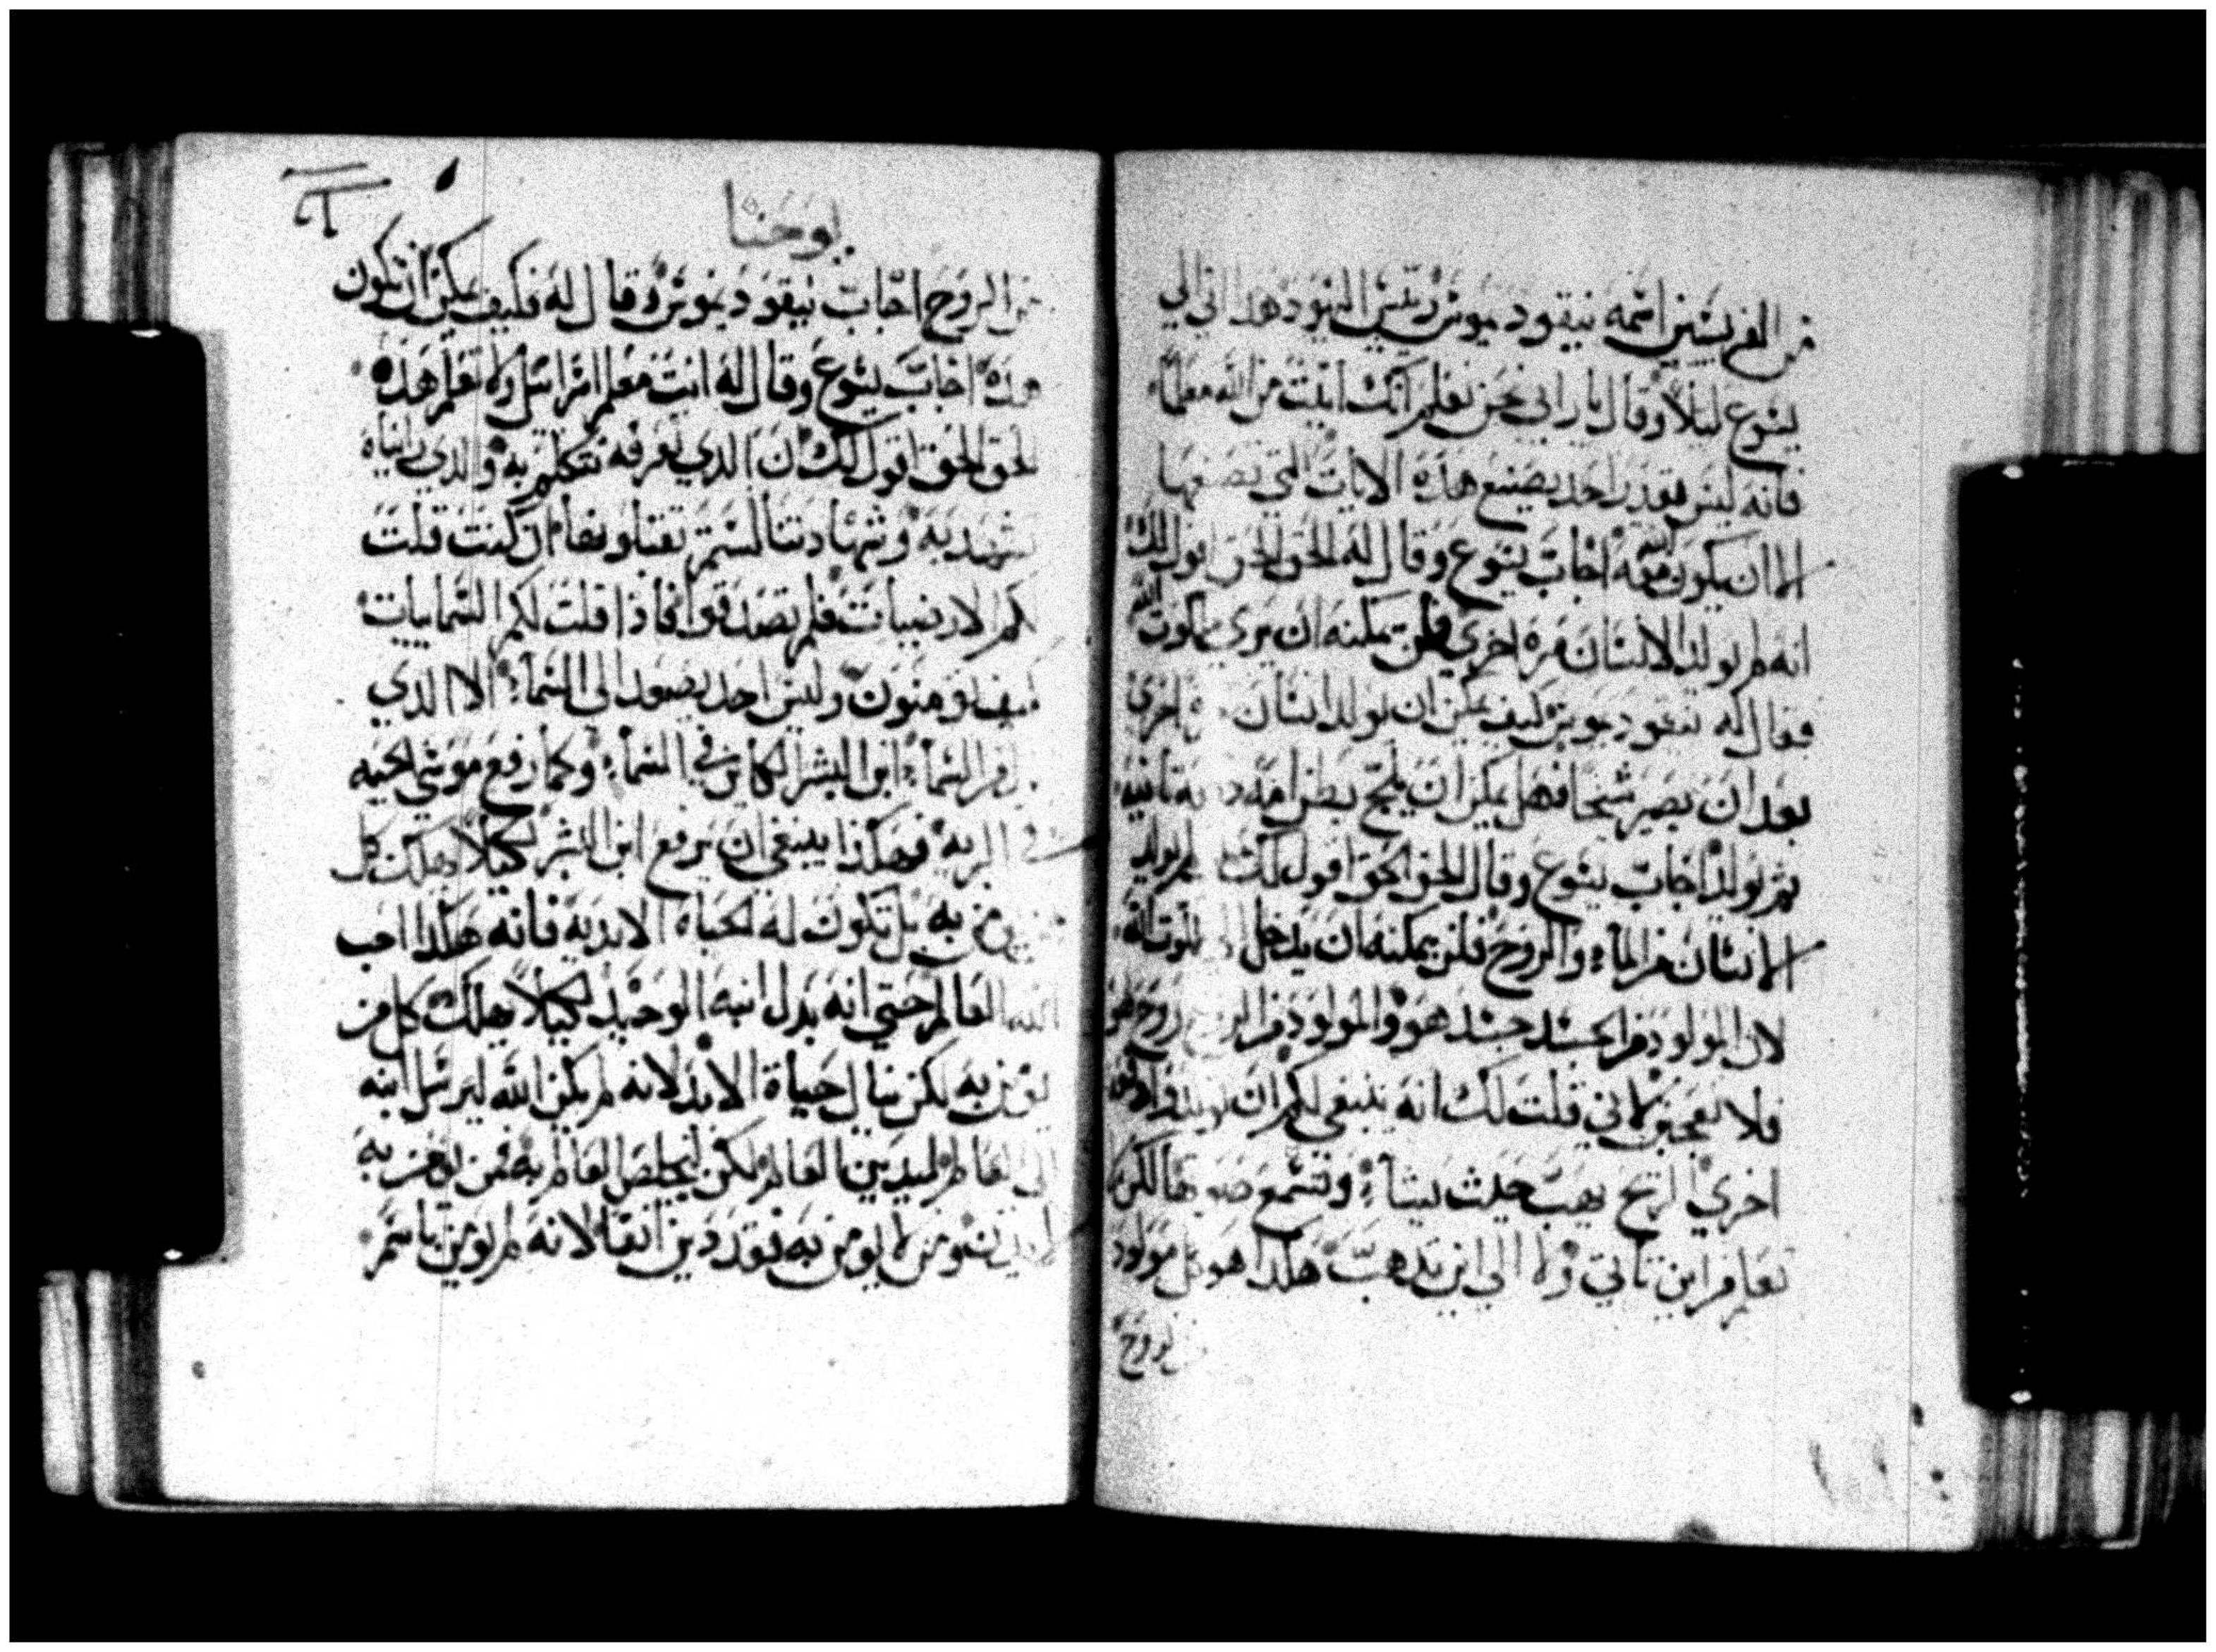 من الفريسيين اسمه نيقوديموس رييس اليهود هدا اتي الي
يسوع ليلا وقال يا رابي نحن نعلم انك اتيت من الله معلما
فانه ليس يقدر احد يصنع هذه الايات التي تصنعها
الا ان يكون الله معه اجاب يسوع وقال له الحق الحق اقول لك
انه لم يولد الانسان مره اخري فلن يمكنه ان يري ملكوت الله
فقال له نيقوديموس كيف يمكن ان يولد انسان اخري
بعد ان يصير شيخا فهل يمكن ان يلج بطن امه تانيه
ثم يولد اجاب يسوع وقال الحق الحق اقول لك لم يولد
الانسان من الماء والروح فلن يمكنه ان يدخل ملكوت الله
لان المولود من الجسد جسد هو والمولود من الروح روح هو
فلا تعجبن لاني قلت لك انه ينبغي لكم ان
اخري الريح يهب حيث يشاء وتسمع صوتها لكن
تعلم من اين تاتي ولا الي اين تدهب هكدا هو كل مولود
الروح
يوحنا
من الروح اجاب نيقوديموس وقال له فكيف يمكن ان تكون
هذه اجاب يسوع وقال له انت معلم اسراييل ولا تعلم هذه
الحق الحق اقول لك ان الدي نعرفه نتكلم به والدي رايناه
نشهد به وشهادتنا لستم تقبلونها ان كنت قلت
لكم الارضيات فلم تصدقوا فاذا قلت لكم السماييات
كيف تومنون وليس احد يصعد الى السماء الا الدي
من السماء ابن البشر الكاين في السماء وكما رفع موسى الحيه
في البريه فهكذا ينبغي ان يرفع ابن البشر لكيلا يهلك كل
من به بل تكون له الحياه الابديه فانه هكدا احب
الله العالم حتي انه بدل ابنه الوحيد لكيلا يهلك كل من
يومن به لكن ينال حياة الابد لانه لم يكن الله ليرسل ابنه
الى العالم ليدين العالم لكن ليخلص العالم به فمن يومن به
ومن لا يومن به فقد دين انفا لانه لم يومن باسم